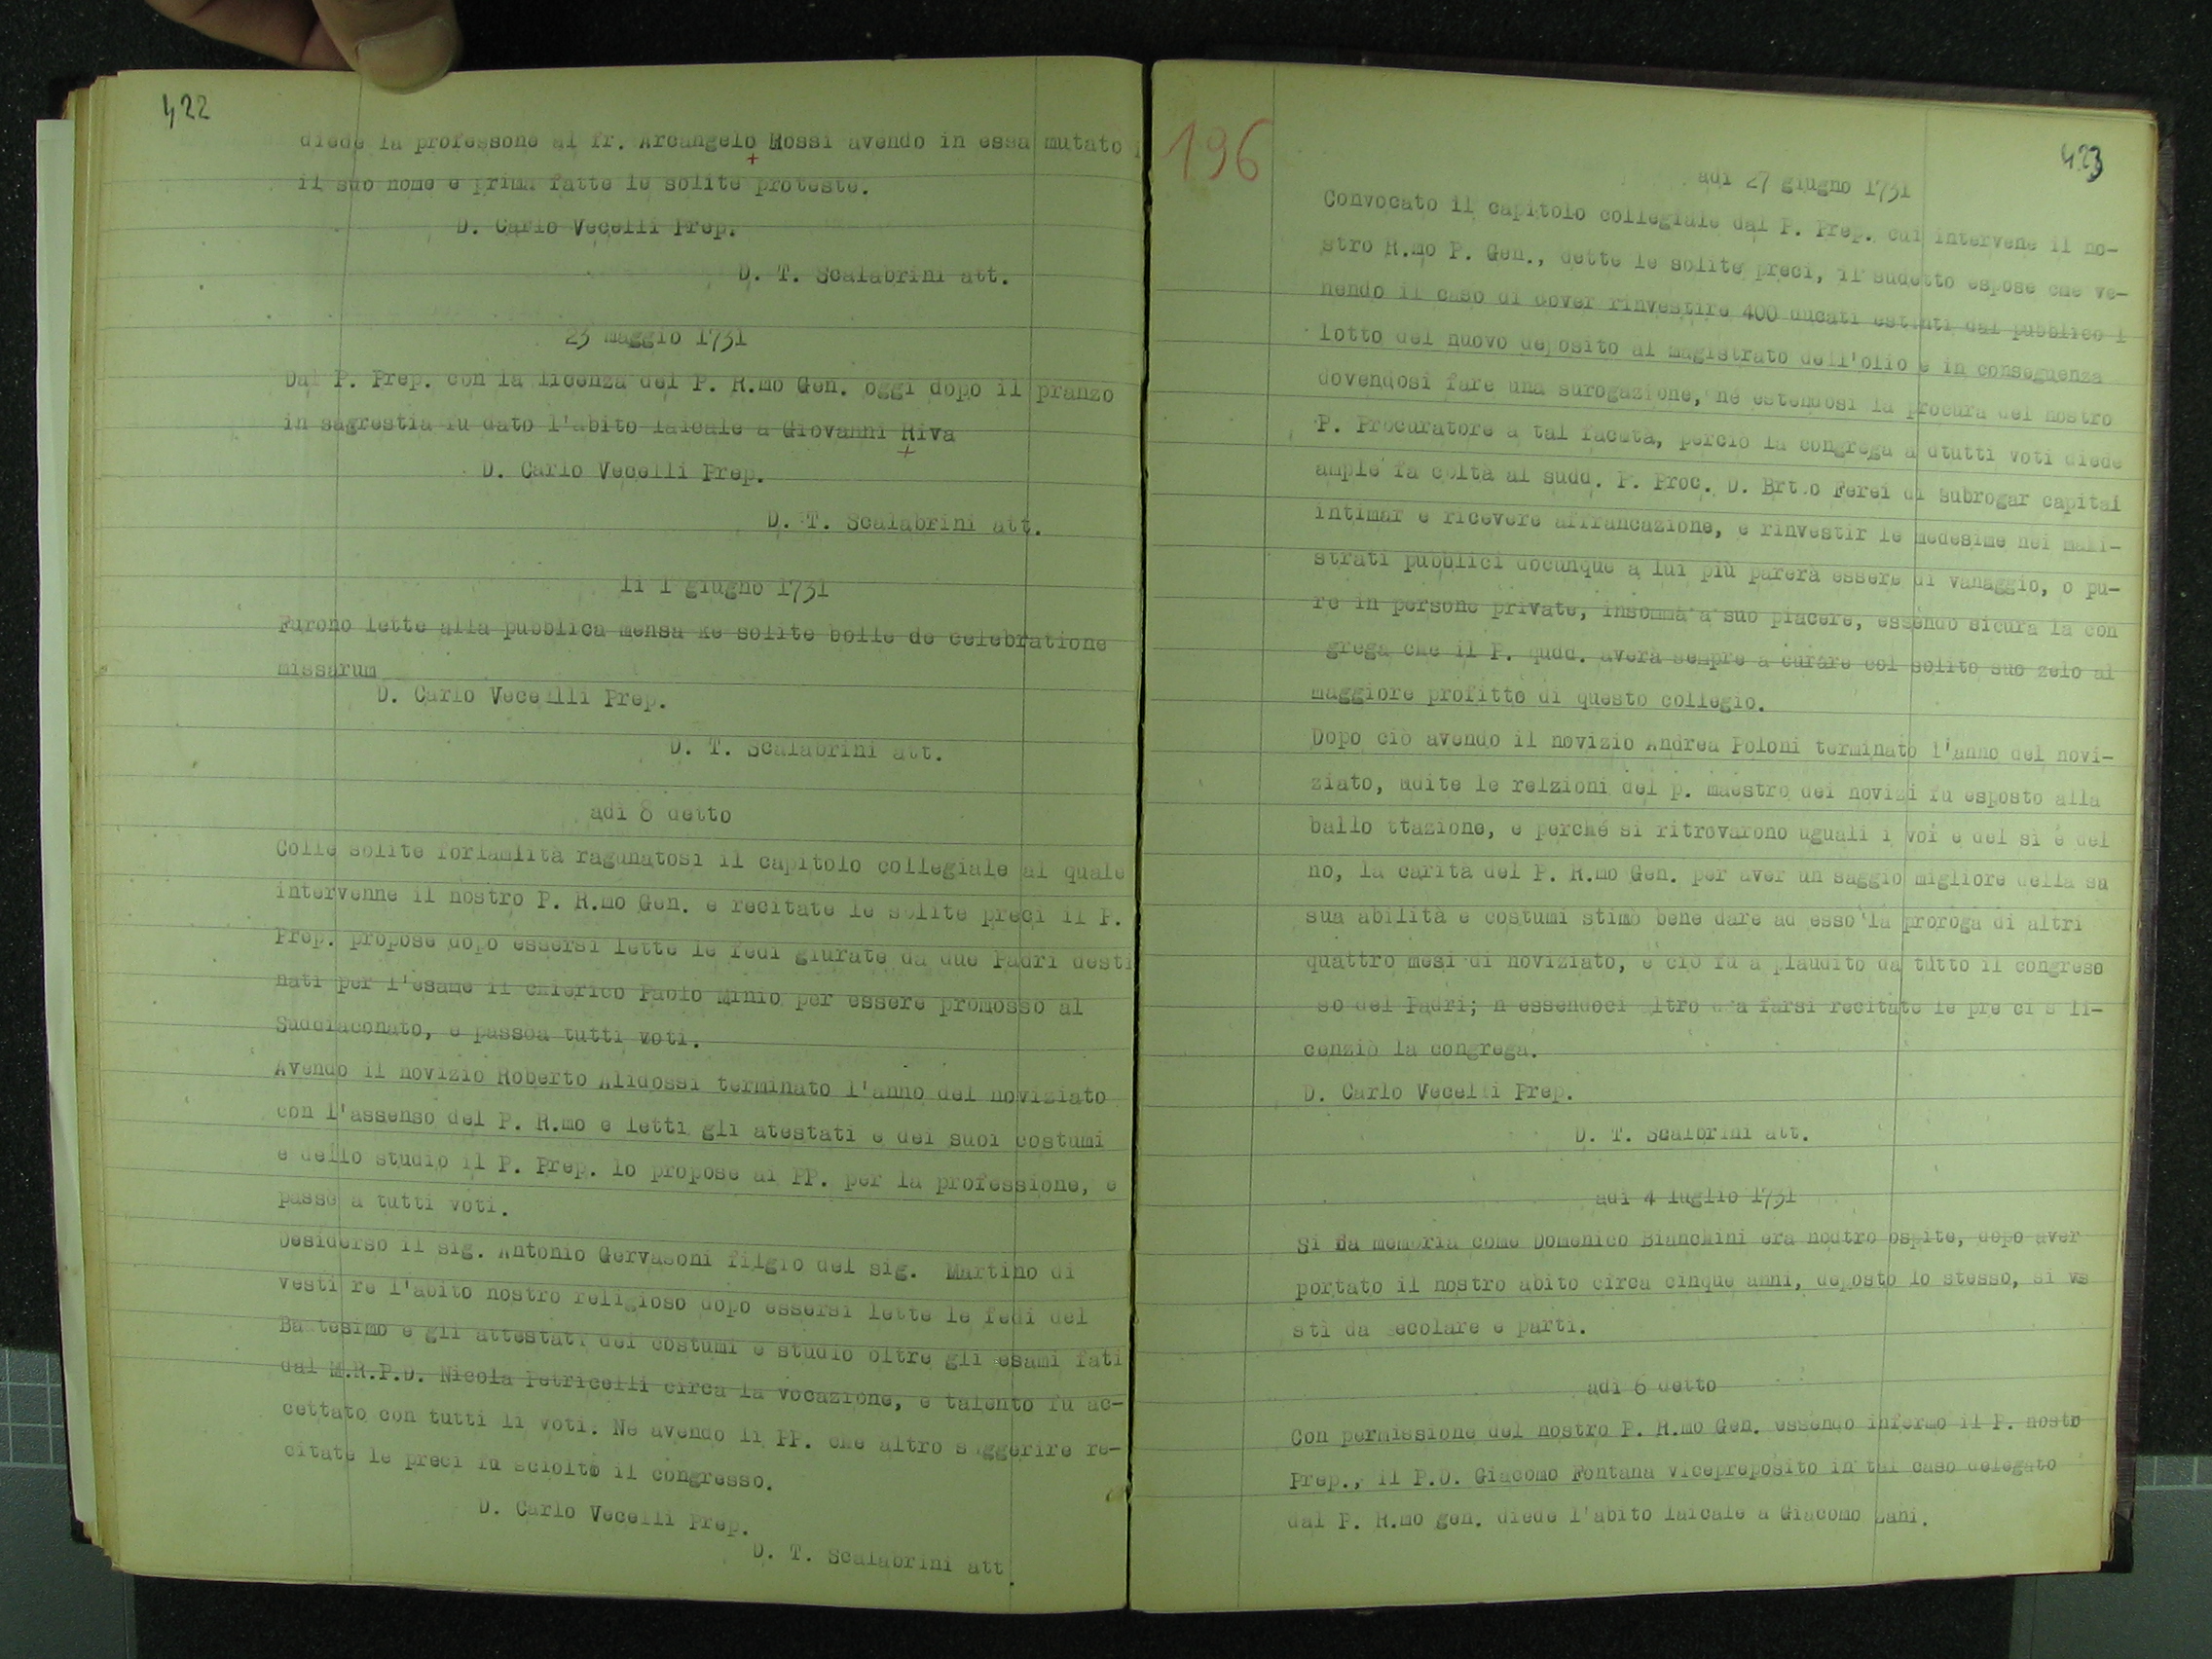 422
diede la professone al fr. Arcangelo Rossi avendo in essa mutato
+
il suo nome e prima fatte le solite proteste.
D. Carlo Vecelli Prep.
D. T. Scalabrini att.
23 maggio 1731
Dal P. Prep. con la licenza del P. R.mo Gen. oggi dopo il pranzo
in sagrestia fu dato l'abito laicale a Giovanni Riva
+
D. Carlo Vecelli Prep.
D. T. Scalabrini att.
li 1 giugno 1731
Furono lette alla pubblica mensa ke solite bolle de celebratione
missarum
D. Carlo Vecellli Prep.
D. T. Scalabrini att.
adi 8 detto
Colle solite forlamlità ragunatosi il capitolo collegiale al quale
intervenne il nostro P. R.mo Gen. e recitate le solite preci il P.
Prep. propose dopo essersi lette le fedi giurate da due Padri desti
nati per l'esame il chierico Paolo Minio per essere promosso al
Suddiaconato, e passoa tutti voti.
Avendo il novizio Roberto Alidossi terminato l'anno del noviziato
con l'assenso del P. R.mo e letti gli atestati e dei suoi costumi
e dello studio il P. Prep. lo propose ai PP. per la professione, e
passò a tutti voti.
Desiderso il sig. Antonio Gervasoni filgio del sig. Martino di
vesti re l'abito nostro religioso dopo essersi lette le fedi del
Battesimo e gli attestati dei costumi e studio oltre gli esami fati
dal M.R.P.D. Nicola Petricelli circa la vocazione, e talento fu ac-
cettato con tutti li voti. Nè avendo li PP. che altro suggerire re-
citate le preci fu sciolto il congresso.
D. Carlo Vecelli Prep.
D. T. Scalabrini att.
196
423
adi 27 giugno 1731
Convocato il capitolo collegiale dal P. Prep. cui intervene il no-
stro R.mo P. Gen., dette le solite preci, il sudetto espose che ve-
nendo il caso di dover rinvestire 400 ducati estinti dal pubblico l
lotto del nuovo deposito al magistrato dell'olio e in conseguenza
dovendosi fare una surogazione, nè estendosi la procura del nostro
P. Procuratore a tal facutà, perciò la congrega a dtutti voti diede
ample fa coltà al sudd. P. Proc. D. Brt.o Ferei di subrogar capitai
intimar e ricevere affrancazione, e rinvestir le medesime nei mali-
strati pubblici docunque a lui più parerà essere di vanaggio, o pu-
re in persone private, insomma a suo piacere, essendo sicura la con
grega che il P. qudd. averà sempre a curare col solito suo zelo al
maggiore profitto di questo collegio.
Dopo ciò avendo il novizio Andrea Poloni terminato l'anno del novi-
ziato, udite le relzioni del p. maestro dei novizi fu esposto alla
ballo ttazione, e perchè si ritrovarono uguali i voi e del si e del
no, la carità del P. R.mo Gen. per aver un saggio migliore della su
sua abilità e costumi stimò bene dare ad esso la proroga di altri
quattro mesi di noviziato, e ciò fu a plaudito da tutto il congreso
so dei Padri; n essendoci altro da farsi recitate le pre ci s li-
cenziò la congrega.
D. Carlo Vecelli Prep.
D. T. Scalbrini att.
adi 4 luglio 1731
Si fa memoria come Domenico Bianchini era nodtro ospite, dopo aver
portato il nostro abito circa cinque anni, deposto lo stesso, si vs
stì da secolare e partì.
adi 6 detto
Con permissione del nostro P. R.mo Gen. essendo infermo il P. nostr
Prep., il P.D. Giacomo Fontana vicepreposito in tal caso delegato
dal P. R.mo gen. diede l'abito laicale a Giacomo Lani.